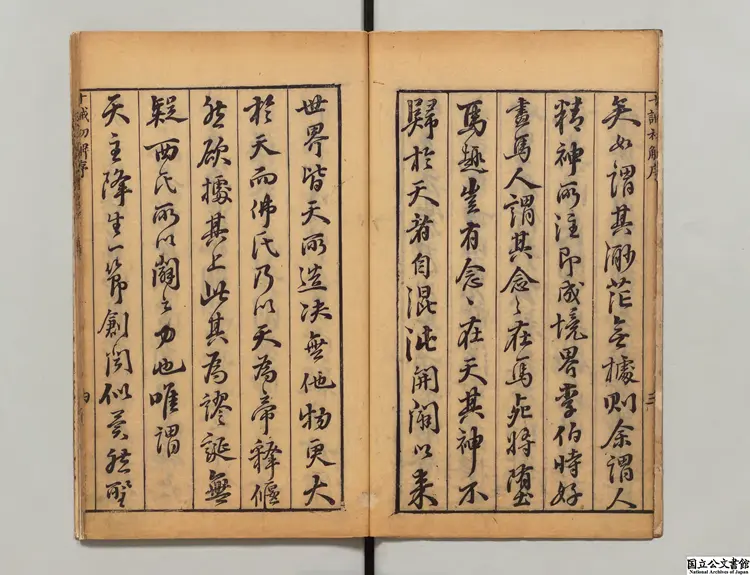 十誡初解序
三
矣如謂其渺茫無據則余謂人
精神所注即成境界李伯時好
畫馬人謂其念々在馬死將墮
馬趣豈有念々在天其神不
歸於天者自混沌開闢以來
世界皆天所造决無他物更大
於天而佛氏乃以天為帝釋偃
然欲據其上此其為謬誕無
疑西氏所以闢之力也唯謂
天主降生一節創聞似異然聖
十誡初解序
四
国立公文書館
National Archives of Japan